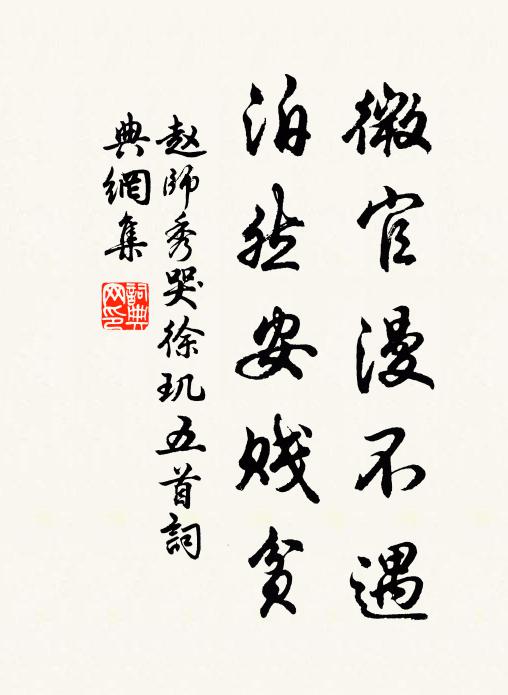 微官漫不遇
泊然安贱贫
赵師秀哭徐玑五首詞
典網集
詞典网印